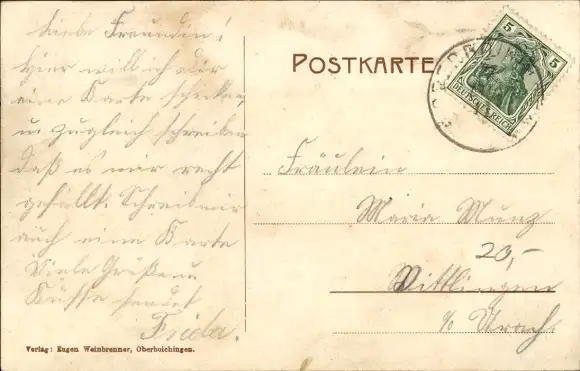 Liebe Freundin!
Hier will ich dir
eine Karte schicken,
u. zugleich schreiben
daß es mir recht
gefällt. Schreib mir
auch eine Karte
Viele Grüße u.
Küsse sendet
Frieda.
Verlag: Eugen Weinbrenner, Oberboihingen.
POSTKARTE
5 5
DEUTSCHES REICH
Fräulein
Maria Munz
20,-
Wittlingen
b/ Urach.